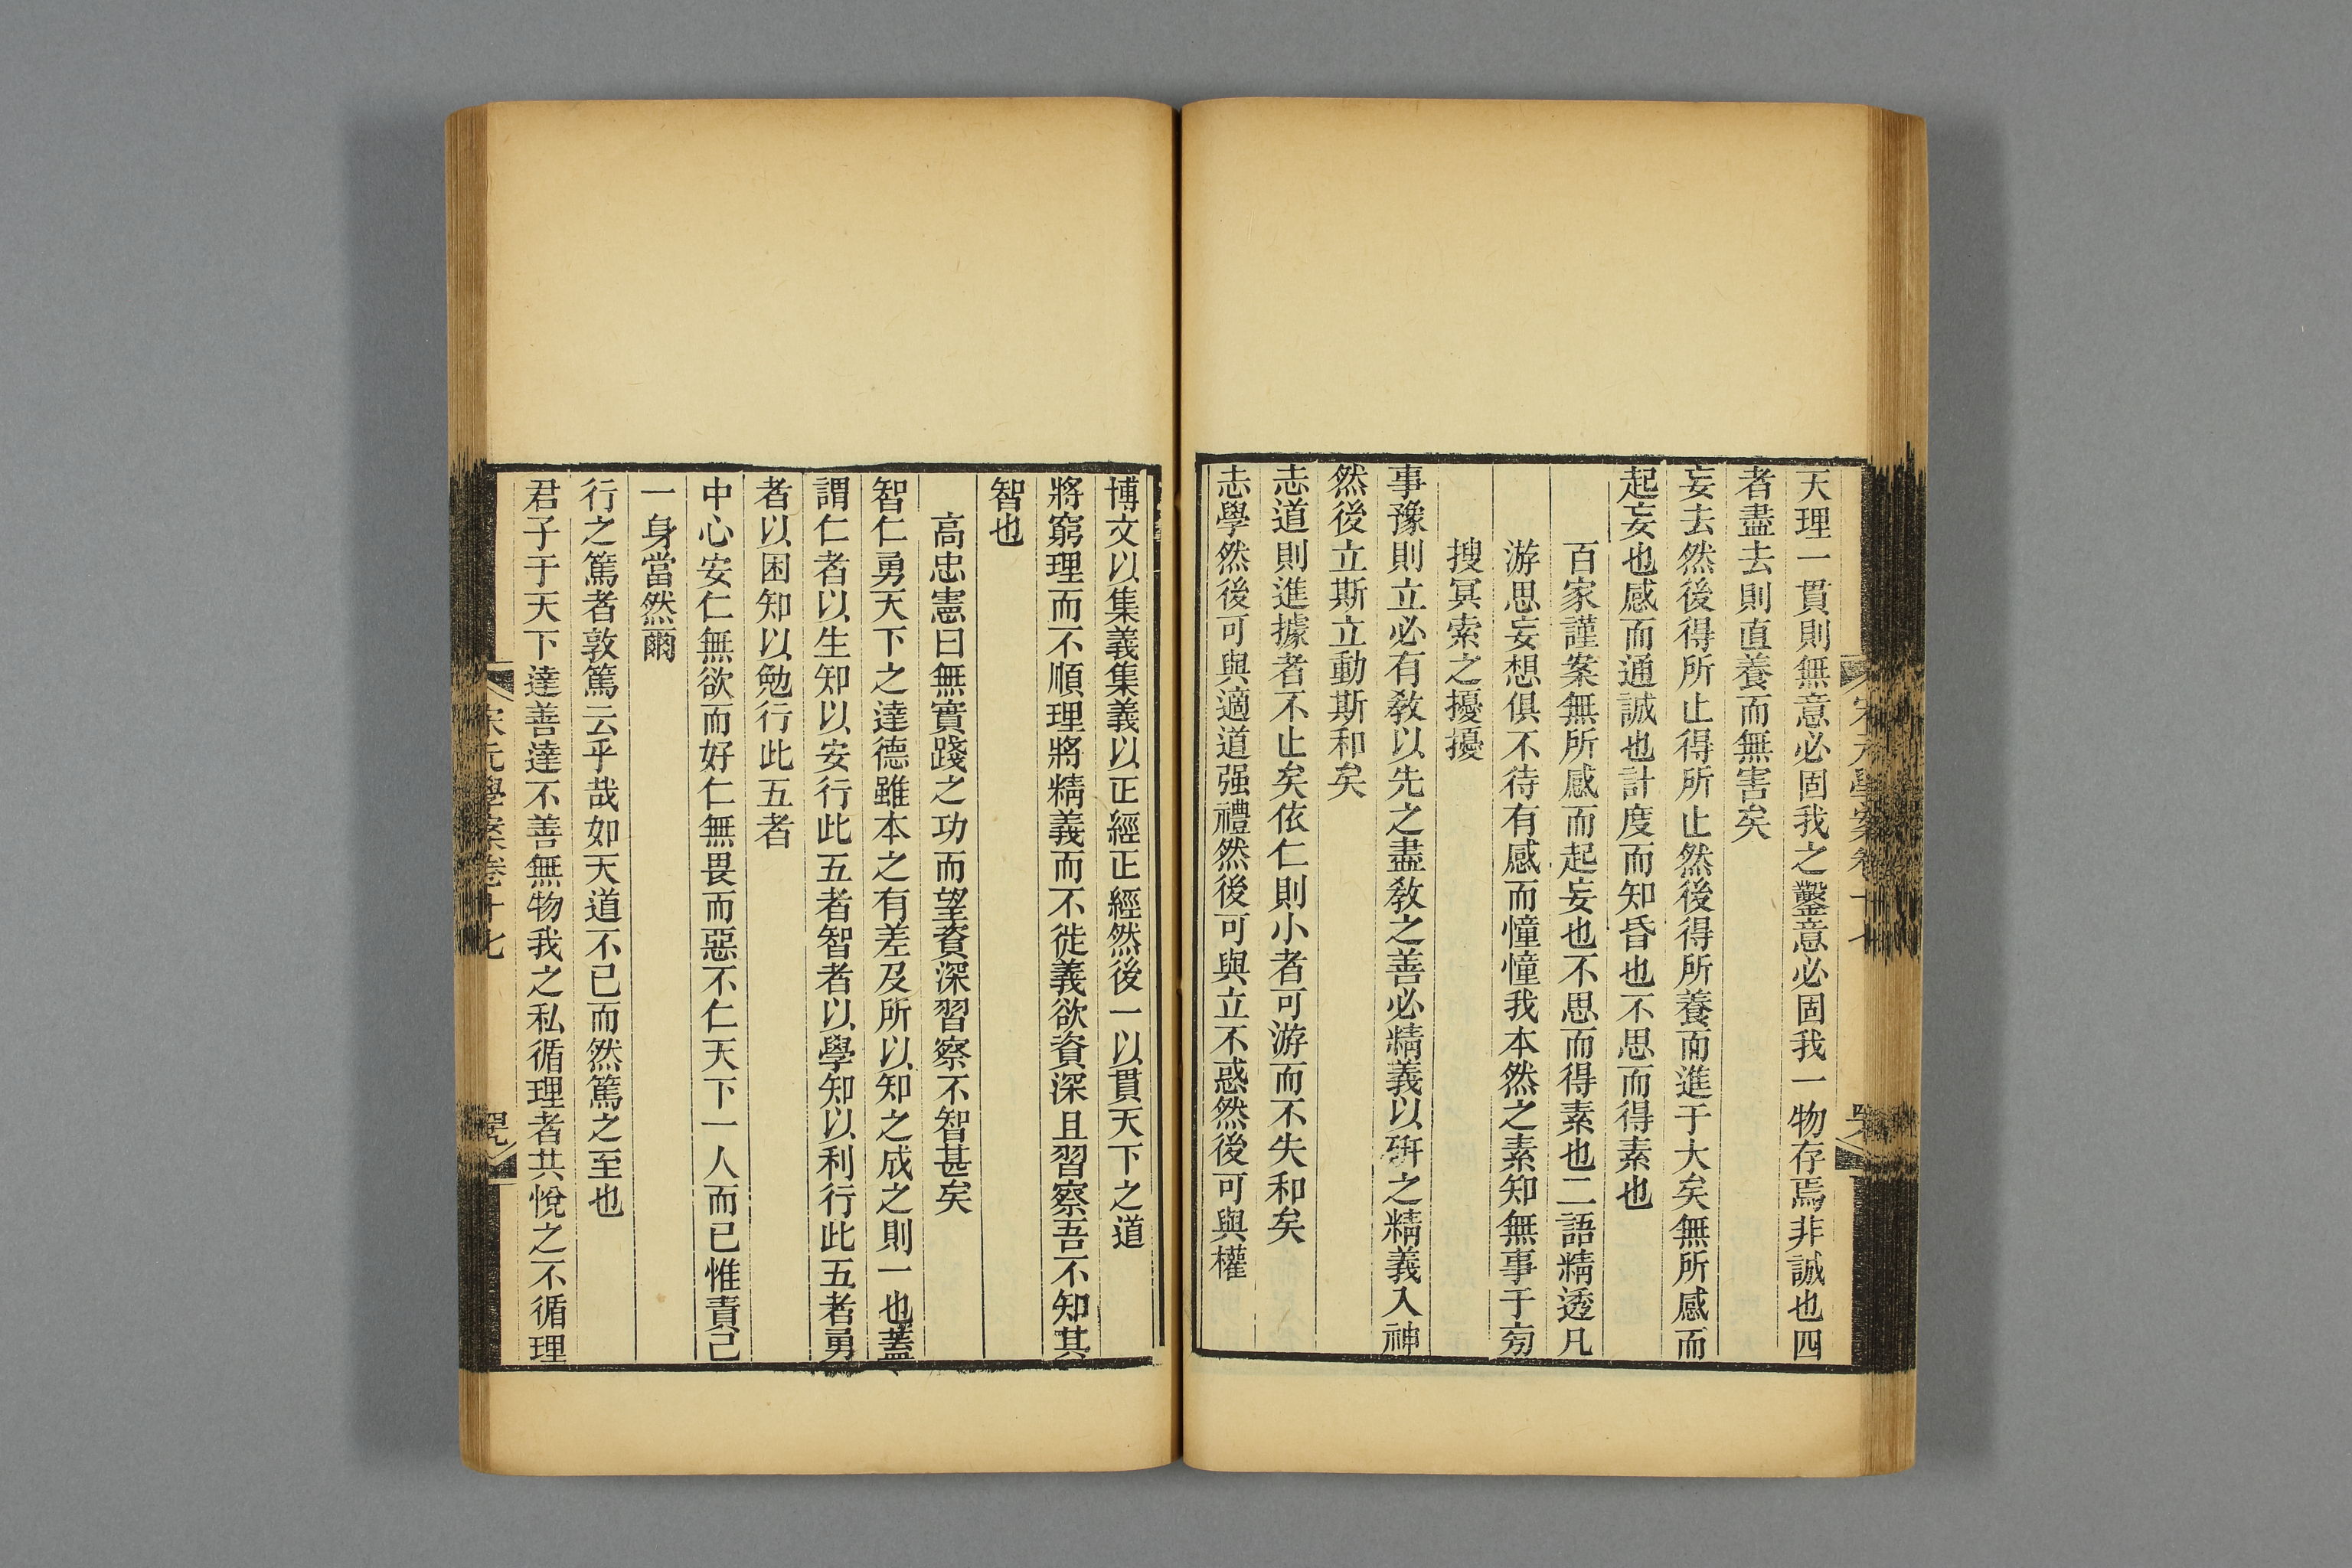 天理一貫則無意必固我之鑿意必固我一物存焉非誠也四
者盡去則直養而無害矣
妄去然後得所止得所止然後得所養而進于大矣無所感而
起妄也感而通誠也計度而知昏也不思而得素也
百家謹案無所感而起妄也不思而得素也二語精透凡
游思妄想俱不待有感而憧憧我本然之素知無事于旁
搜冥索之擾擾
事豫則立必有敎以先之盡敎之善必精義以硏之精義入神
然後立斯立動斯和矣
志道則進據者不止矣依仁則小者可游而不失和矣
志學然後可與適道强禮然後可與立不惑然後可與權
博文以集義集義以正經正經然後一以貫天下之道
將窮理而不順理將精義而不徙義欲資深且習察吾不知其
智也
高忠憲曰無實踐之功而望資深習察不智甚矣
智仁勇天下之達德雖本之有差及所以知之成之則一也蓋
謂仁者以生知以安行此五者智者以學知以利行此五者勇
者以困知以勉行此五者
中心安仁無欲而好仁無畏而惡不仁天下一人而已惟責己
一身當然爾
行之篤者敦篤云乎哉如天道不已而然篤之至也
君子于天下達善達不善無物我之私循理者共悅之不循理
宋元學案卷十七